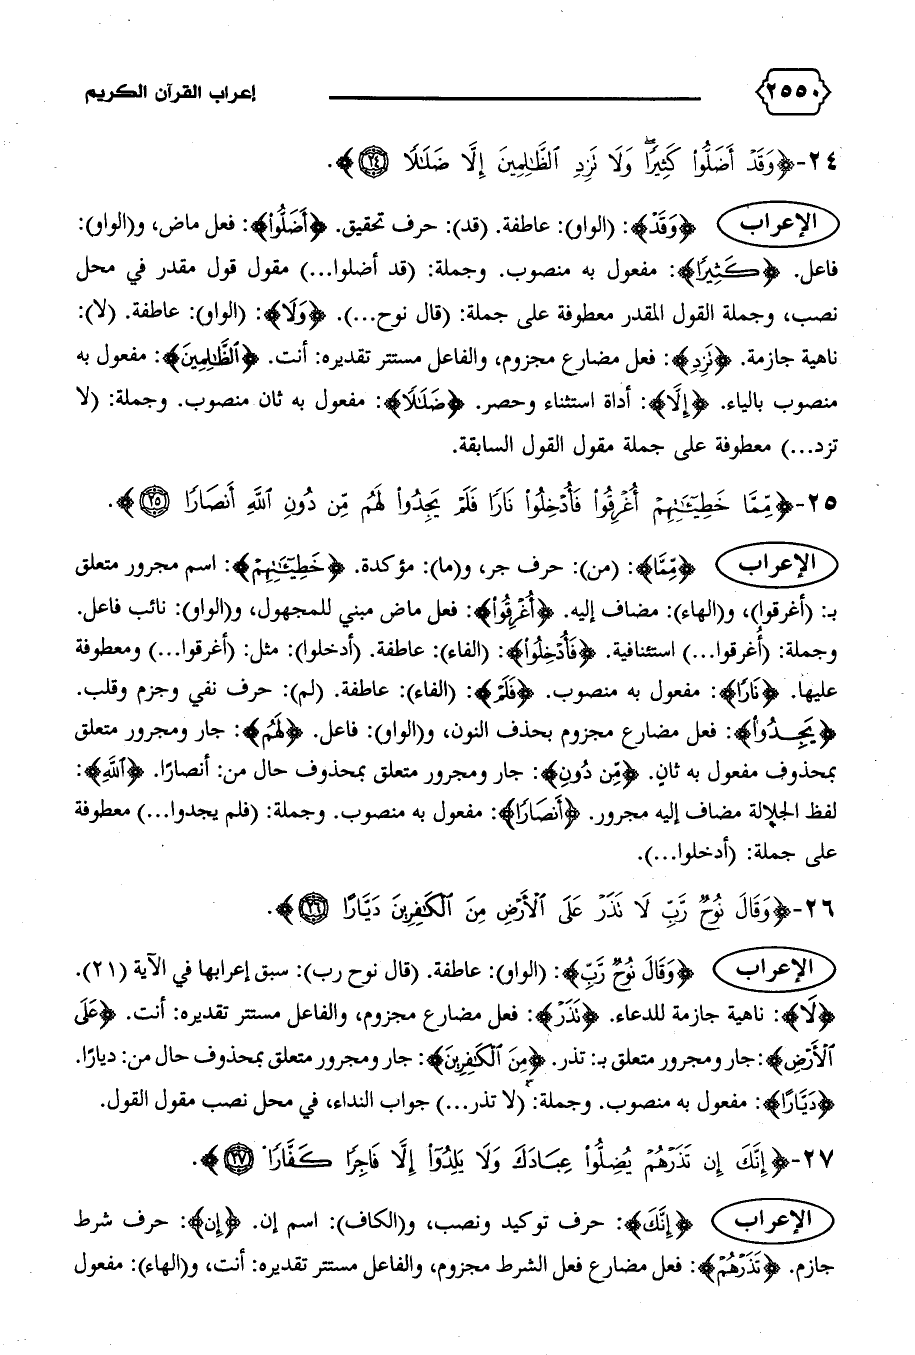 ٢٥٥٠ إعراب القرآن الكريم
٢٤-﴿وَقَدْ أَضَلُّوا۟ كَثِيرًۭا ۖ وَلَا تَزِدِ ٱلظَّٰلِمِينَ إِلَّا ضَلَٰلًۭا ٢٤﴾.
الإعراب ﴿وَقَدْ﴾: (الواو): عاطفة. (قد): حرف تحقيق. ﴿أَضَلُّوا۟﴾: فعل ماض، و(الواو):
فاعل. ﴿كَثِيرًا﴾: مفعول به منصوب. وجملة: (قد أضلوا...) مقول قول مقدر في محل
نصب، وجملة القول المقدر معطوفة على جملة: (قال نوح...). ﴿وَلَا﴾: (الواو): عاطفة. (لا):
ناهية جازمة. ﴿تَزِدِ﴾: فعل مضارع مجزوم، والفاعل مستتر تقديره: أنت. ﴿ٱلظَّٰلِمِينَ﴾: مفعول به
منصوب بالياء. ﴿إِلَّا﴾: أداة استثناء وحصر. ﴿ضَلَٰلًا﴾: مفعول به ثان منصوب. وجملة: (لا
تزد...) معطوفة على جملة مقول القول السابقة.
٢٥-﴿مِّمَّا خَطِيٓـَٰٔتِهِمْ أُغْرِقُوا۟ فَأُدْخِلُوا۟ نَارًا فَلَمْ يَجِدُوا۟ لَهُم مِّن دُونِ ٱللَّهِ أَنصَارًا ٢٥﴾.
الإعراب ﴿مِّمَّا﴾: (من): حرف جر، و(ما): مؤكدة. ﴿خَطِيٓـَٰٔتِهِمْ﴾: اسم مجرور متعلق
بـ: (أغرقوا)، و(الهاء): مضاف إليه. ﴿أُغْرِقُوا۟﴾: فعل ماض مبني للمجهول، و(الواو): نائب فاعل.
وجملة: (أُغرقوا...) استئنافية. ﴿فَأُدْخِلُوا۟﴾: (الفاء): عاطفة. (أدخلوا): مثل: (أغرقوا...) ومعطوفة
عليها. ﴿نَارًا﴾: مفعول به منصوب. ﴿فَلَمْ﴾: (الفاء): عاطفة. (لم): حرف نفي وجزم وقلب.
﴿يَجِدُوا۟﴾: فعل مضارع مجزوم بحذف النون، و(الواو): فاعل. ﴿لَهُم﴾: جار ومجرور متعلق
بمحذوف مفعول به ثانٍ. ﴿مِّن دُونِ﴾: جار ومجرور متعلق بمحذوف حال من: أنصارًا. ﴿ٱللَّهِ﴾:
لفظ الجلالة مضاف إليه مجرور. ﴿أَنصَارًا﴾: مفعول به منصوب. وجملة: (فلم يجدوا...) معطوفة
على جملة: (أدخلوا...).
٢٦-﴿وَقَالَ نُوحٌ رَّبِّ لَا تَذَرْ عَلَى ٱلْأَرْضِ مِنَ ٱلْكَٰفِرِينَ دَيَّارًا ٢٦﴾.
الإعراب ﴿وَقَالَ نُوحٌ رَّبِّ﴾: (الواو): عاطفة. (قال نوح رب): سبق إعرابها في الآية (٢١).
﴿لَا﴾: ناهية جازمة للدعاء. ﴿تَذَرْ﴾: فعل مضارع مجزوم، والفاعل مستتر تقديره: أنت. ﴿عَلَى
ٱلْأَرْضِ﴾: جار ومجرور متعلق بـ: تذر. ﴿مِنَ ٱلْكَٰفِرِينَ﴾: جار ومجرور متعلق بمحذوف حال من: ديارًا.
﴿دَيَّارًا﴾: مفعول به منصوب. وجملة: (لا تذر...) جواب النداء، في محل نصب مقول القول.
٢٧-﴿إِنَّكَ إِن تَذَرْهُمْ يُضِلُّوا۟ عِبَادَكَ وَلَا يَلِدُوٓا۟ إِلَّا فَاجِرًا كَفَّارًا ٢٧﴾.
الإعراب ﴿إِنَّكَ﴾: حرف توكيد ونصب، و(الكاف): اسم إن. ﴿إِن﴾: حرف شرط
جازم. ﴿تَذَرْهُمْ﴾: فعل مضارع فعل الشرط مجزوم، والفاعل مستتر تقديره: أنت، و(الهاء): مفعول